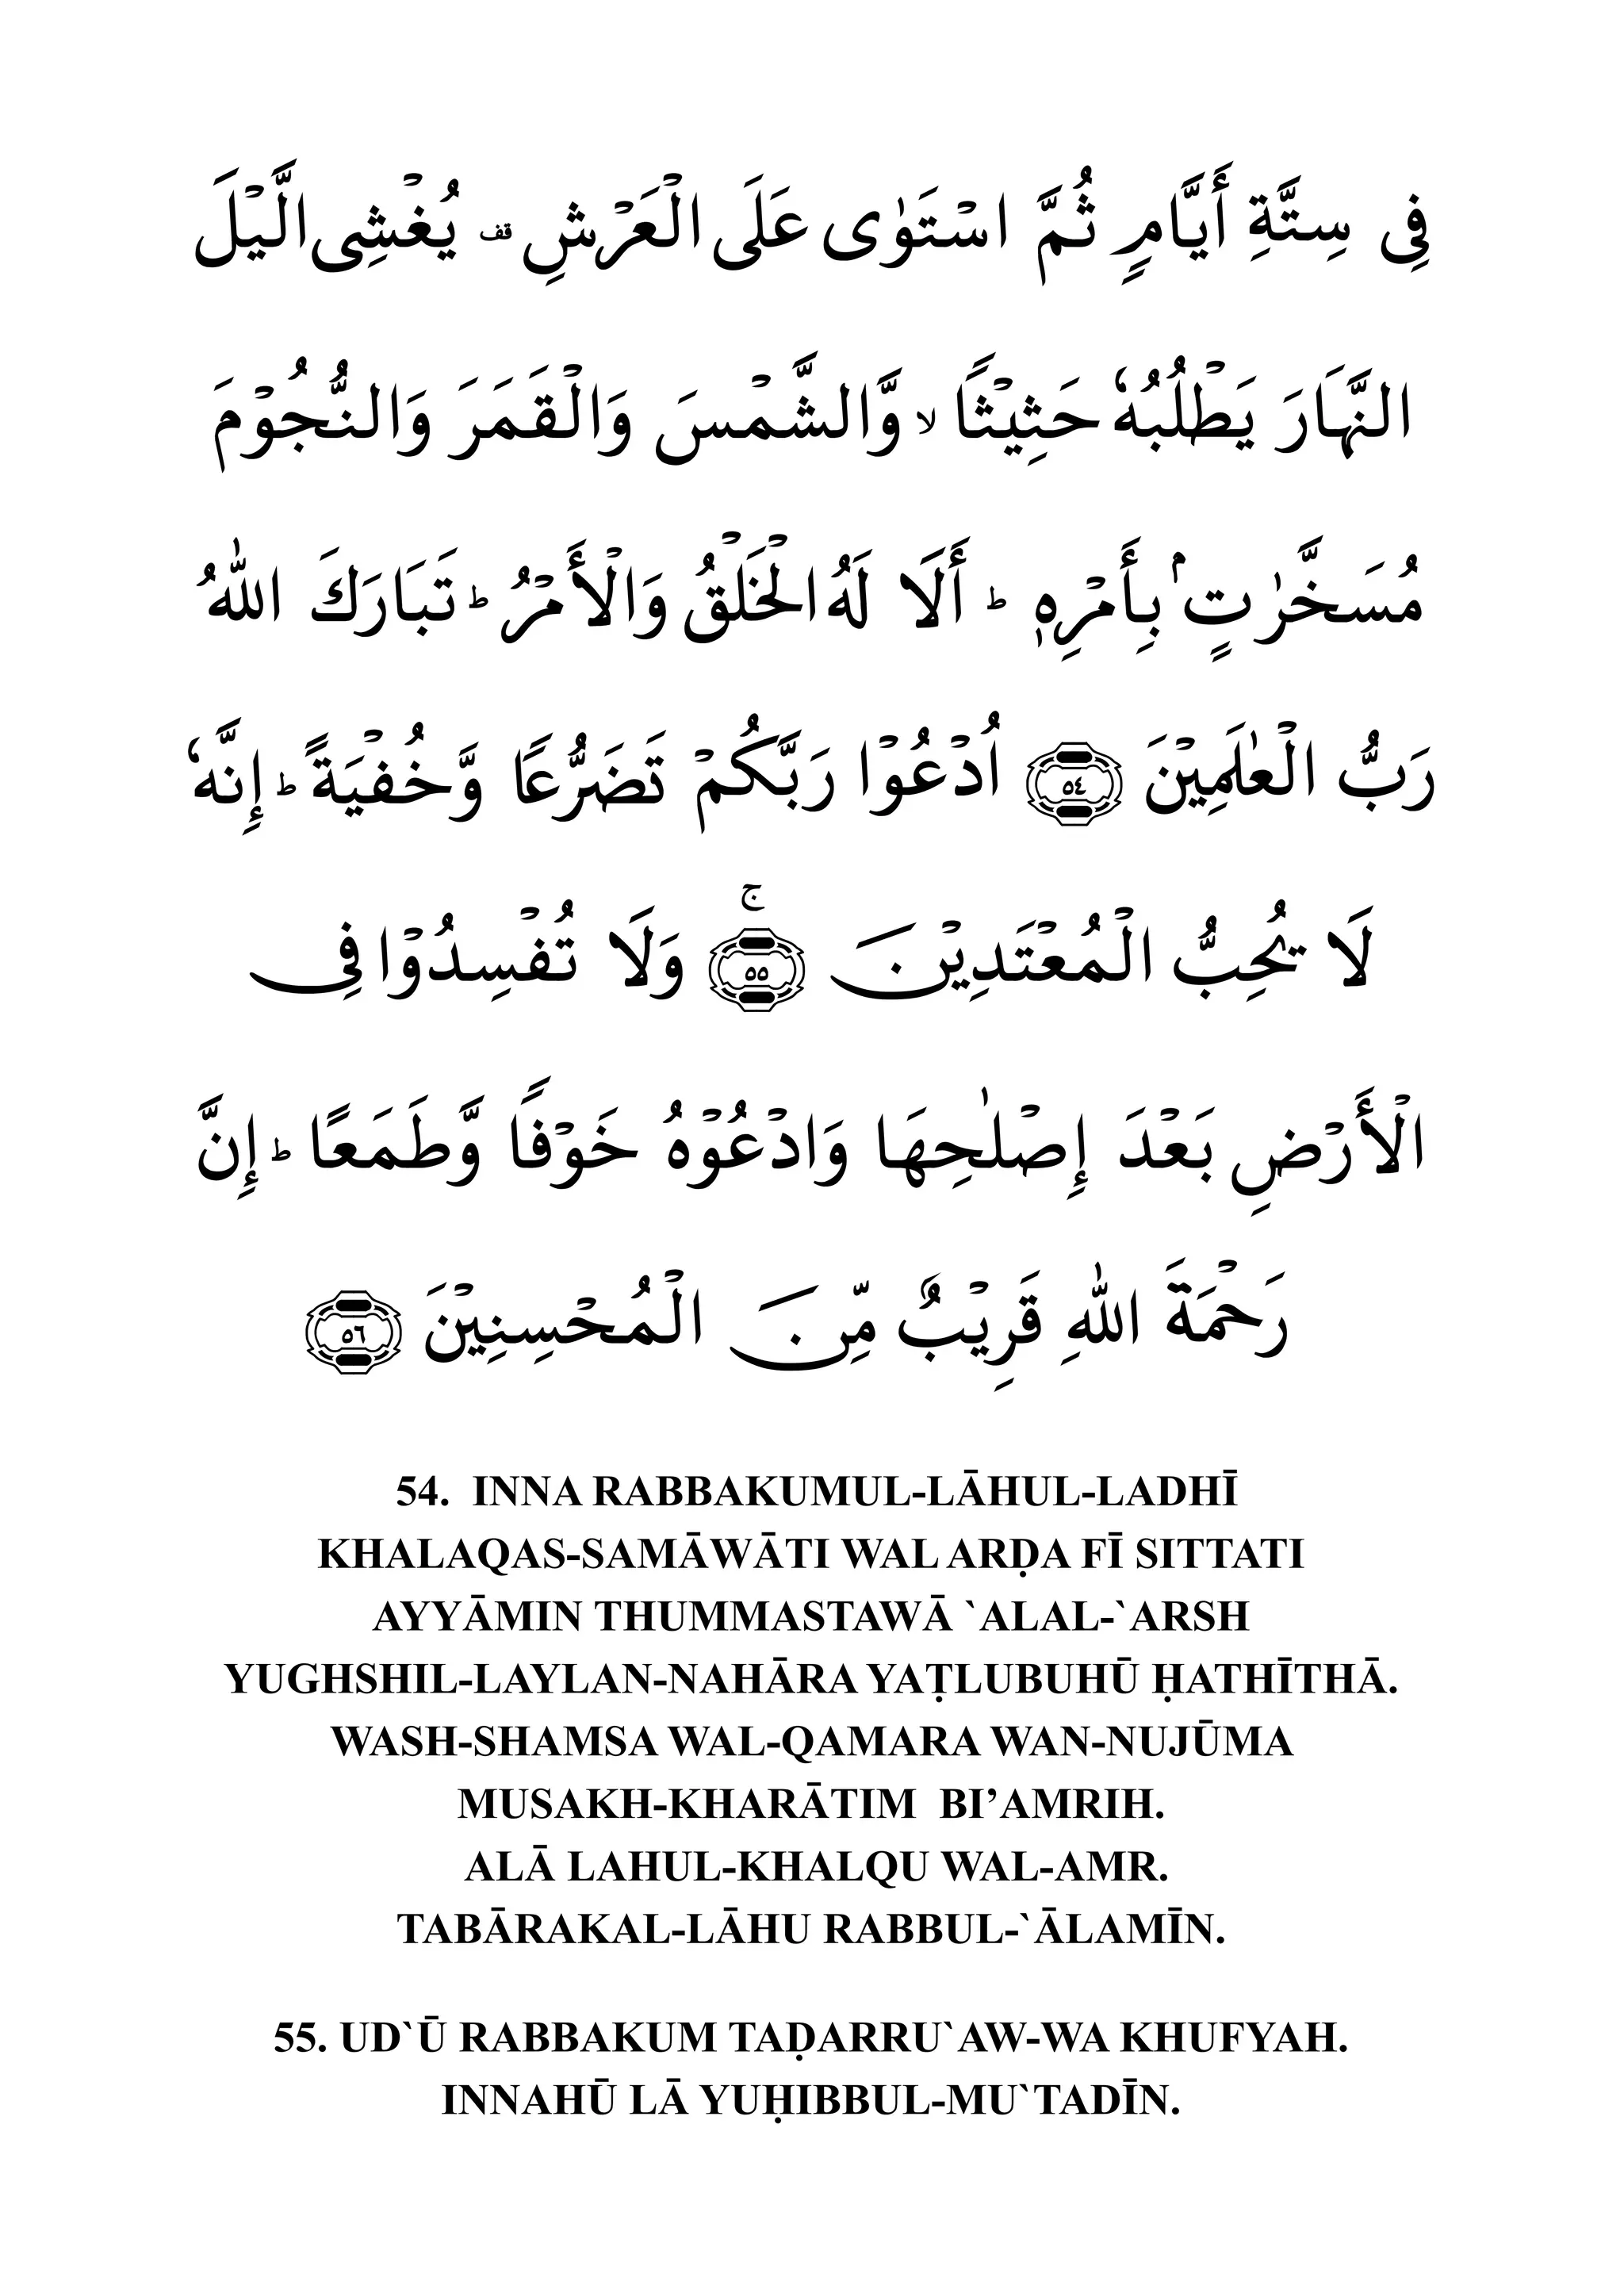 فِى سِتَّةِ أَيَّامٍ ثُمَّ اسْتَوٰى عَلَى الْعَرْشِ ۛقف يُغْشِى الَّيْلَ
النَّهَارَ يَطْلُبُهٗ حَثِيْثًا ۙ وَّالشَّمْسَ وَالْقَمَرَ وَالنُّجُوْمَ
مُسَخَّرٰتٍۢ بِأَمْرِهٖ ؕ أَلَا لَهُ الْخَلْقُ وَالْأَمْرُ ؕ تَبَارَكَ اللّٰهُ
رَبُّ الْعٰلَمِيْنَ ﴿٥٤﴾ اُدْعُوْا رَبَّكُمْ تَضَرُّعًا وَّخُفْيَةً ؕ إِنَّهٗ
لَا يُحِبُّ الْمُعْتَدِيْنَ ﴿٥٥﴾ۚ وَلَا تُفْسِدُوْا فِى
الْأَرْضِ بَعْدَ إِصْلٰحِهَا وَادْعُوْهُ خَوْفًا وَّطَمَعًا ؕ إِنَّ
رَحْمَةَ اللّٰهِ قَرِيْبٌ مِّنَ الْمُحْسِنِيْنَ ﴿٥٦﴾
54. INNA RABBAKUMUL-LĀHUL-LADHĪ
KHALAQAS-SAMĀWĀTI WAL ARḌA FĪ SITTATI
AYYĀMIN THUMMASTAWĀ `ALAL-`ARSH
YUGHSHIL-LAYLAN-NAHĀRA YAṬLUBUHŪ ḤATHĪTHĀ.
WASH-SHAMSA WAL-QAMARA WAN-NUJŪMA
MUSAKH-KHARĀTIM BI’AMRIH.
ALĀ LAHUL-KHALQU WAL-AMR.
TABĀRAKAL-LĀHU RABBUL-`ĀLAMĪN.
55. UD`Ū RABBAKUM TAḌARRU`AW-WA KHUFYAH.
INNAHŪ LĀ YUḤIBBUL-MU`TADĪN.